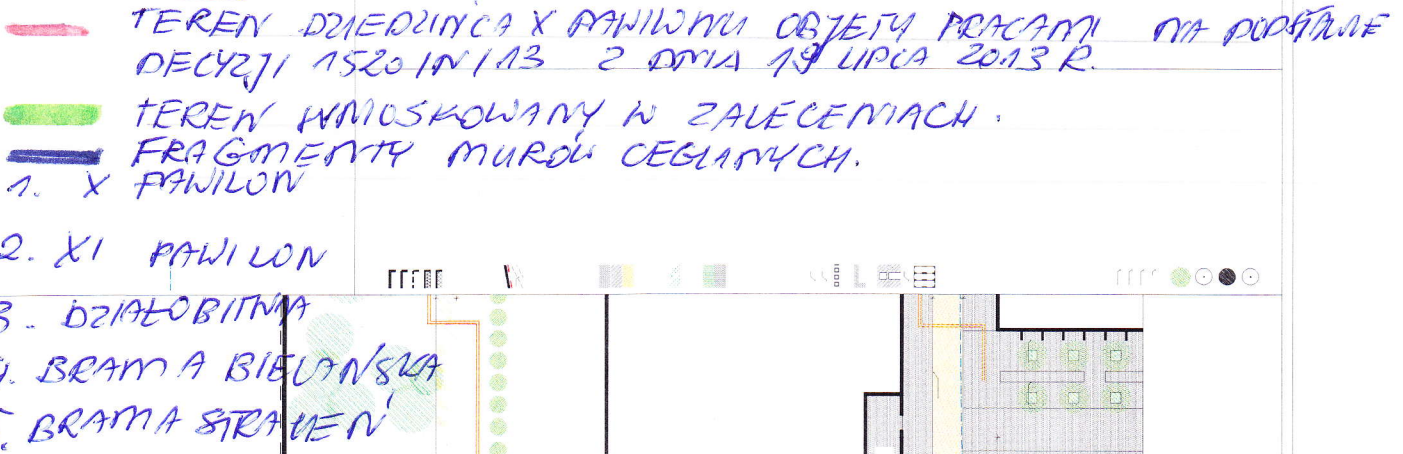 TEREN DZIEDZIŃCA X PAWILONU OBJĘTY PRACAMI NA PODSTAWIE
DECYZJI 1520/N/13 Z DNIA 19 LIPCA 2013 R.
TEREN WNIOSKOWANY W ZALECENIACH.
FRAGMENTY MURÓW CEGLANYCH.
1. X PAWILON
2. XI PAWILON
3. DZIAŁOBITNIA
4. BRAMA BIELAŃSKA
5. BRAMA STRACEŃ